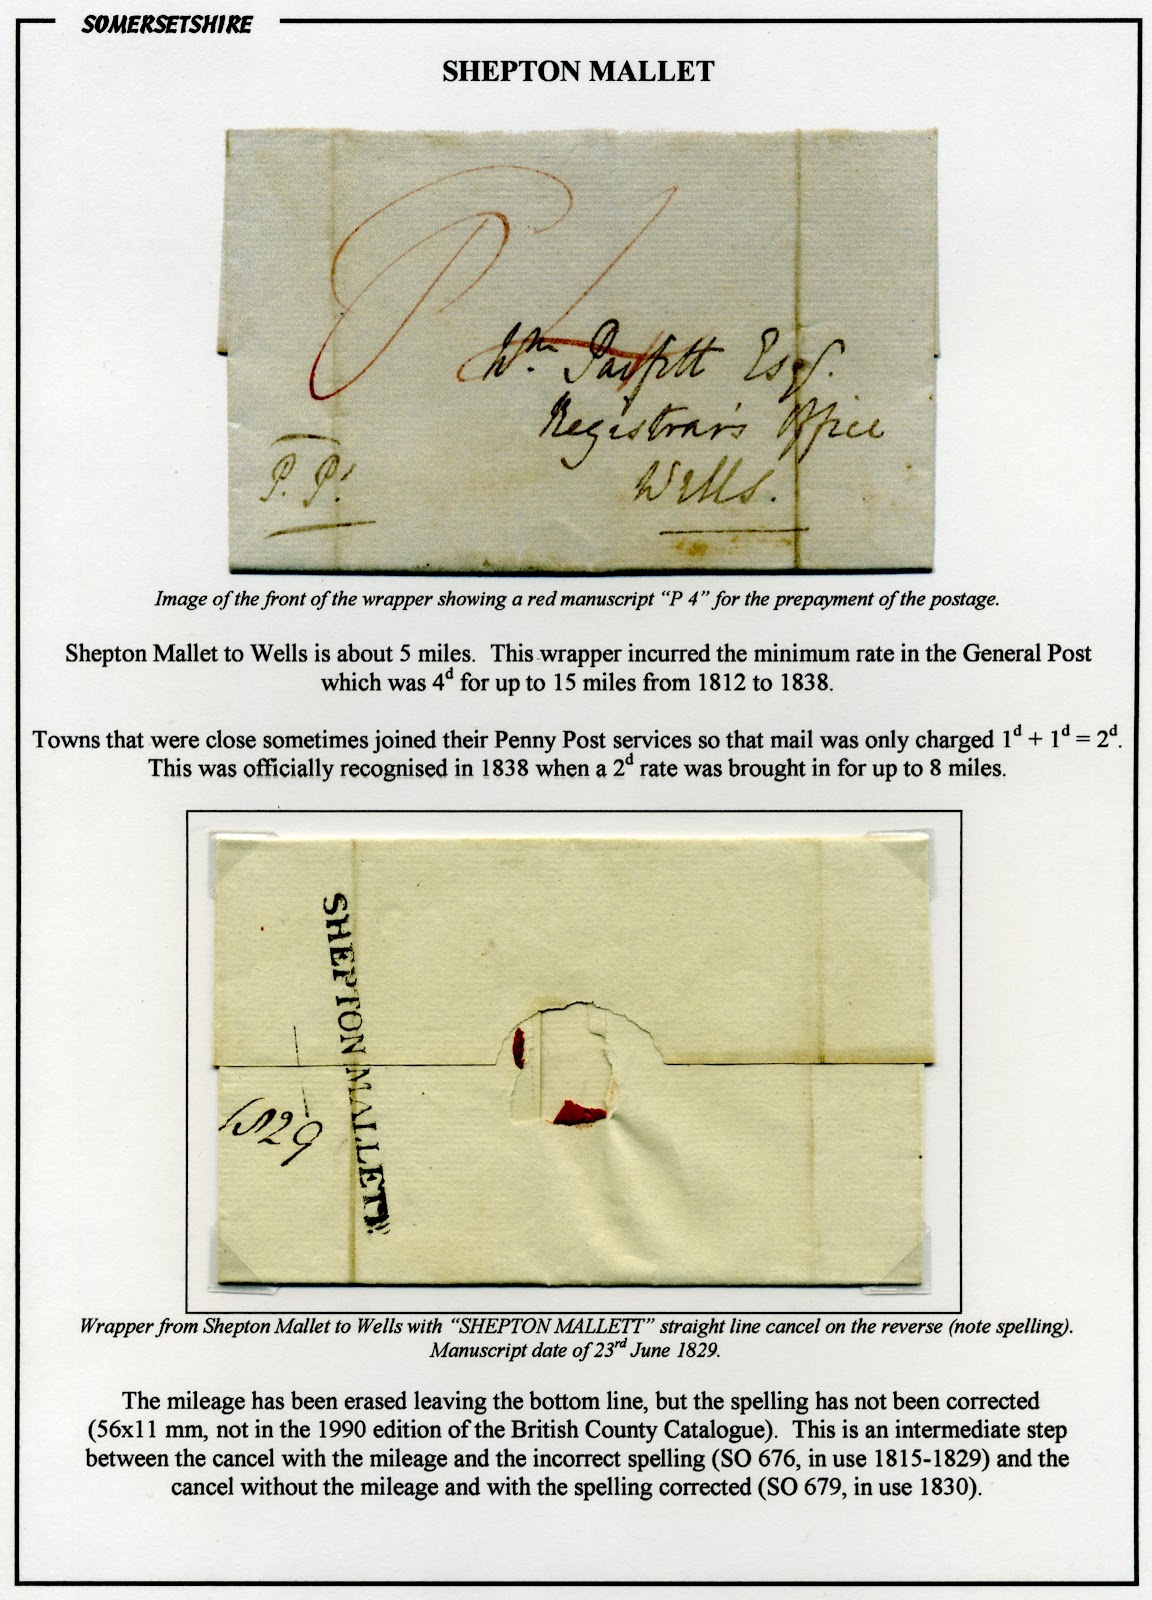 SOMERSETSHIRE
SHEPTON MALLET
P 4
Wm. Parfitt Esqr.
Registrar's Office
Wells.
P. P.
Image of the front of the wrapper showing a red manuscript “P 4” for the prepayment of the postage.
Shepton Mallet to Wells is about 5 miles. This wrapper incurred the minimum rate in the General Post
which was 4d for up to 15 miles from 1812 to 1838.
Towns that were close sometimes joined their Penny Post services so that mail was only charged 1d + 1d = 2d.
This was officially recognised in 1838 when a 2d rate was brought in for up to 8 miles.
SHEPTON MALLETT
1829
Wrapper from Shepton Mallet to Wells with “SHEPTON MALLETT” straight line cancel on the reverse (note spelling).
Manuscript date of 23rd June 1829.
The mileage has been erased leaving the bottom line, but the spelling has not been corrected
(56x11 mm, not in the 1990 edition of the British County Catalogue). This is an intermediate step
between the cancel with the mileage and the incorrect spelling (SO 676, in use 1815-1829) and the
cancel without the mileage and with the spelling corrected (SO 679, in use 1830).